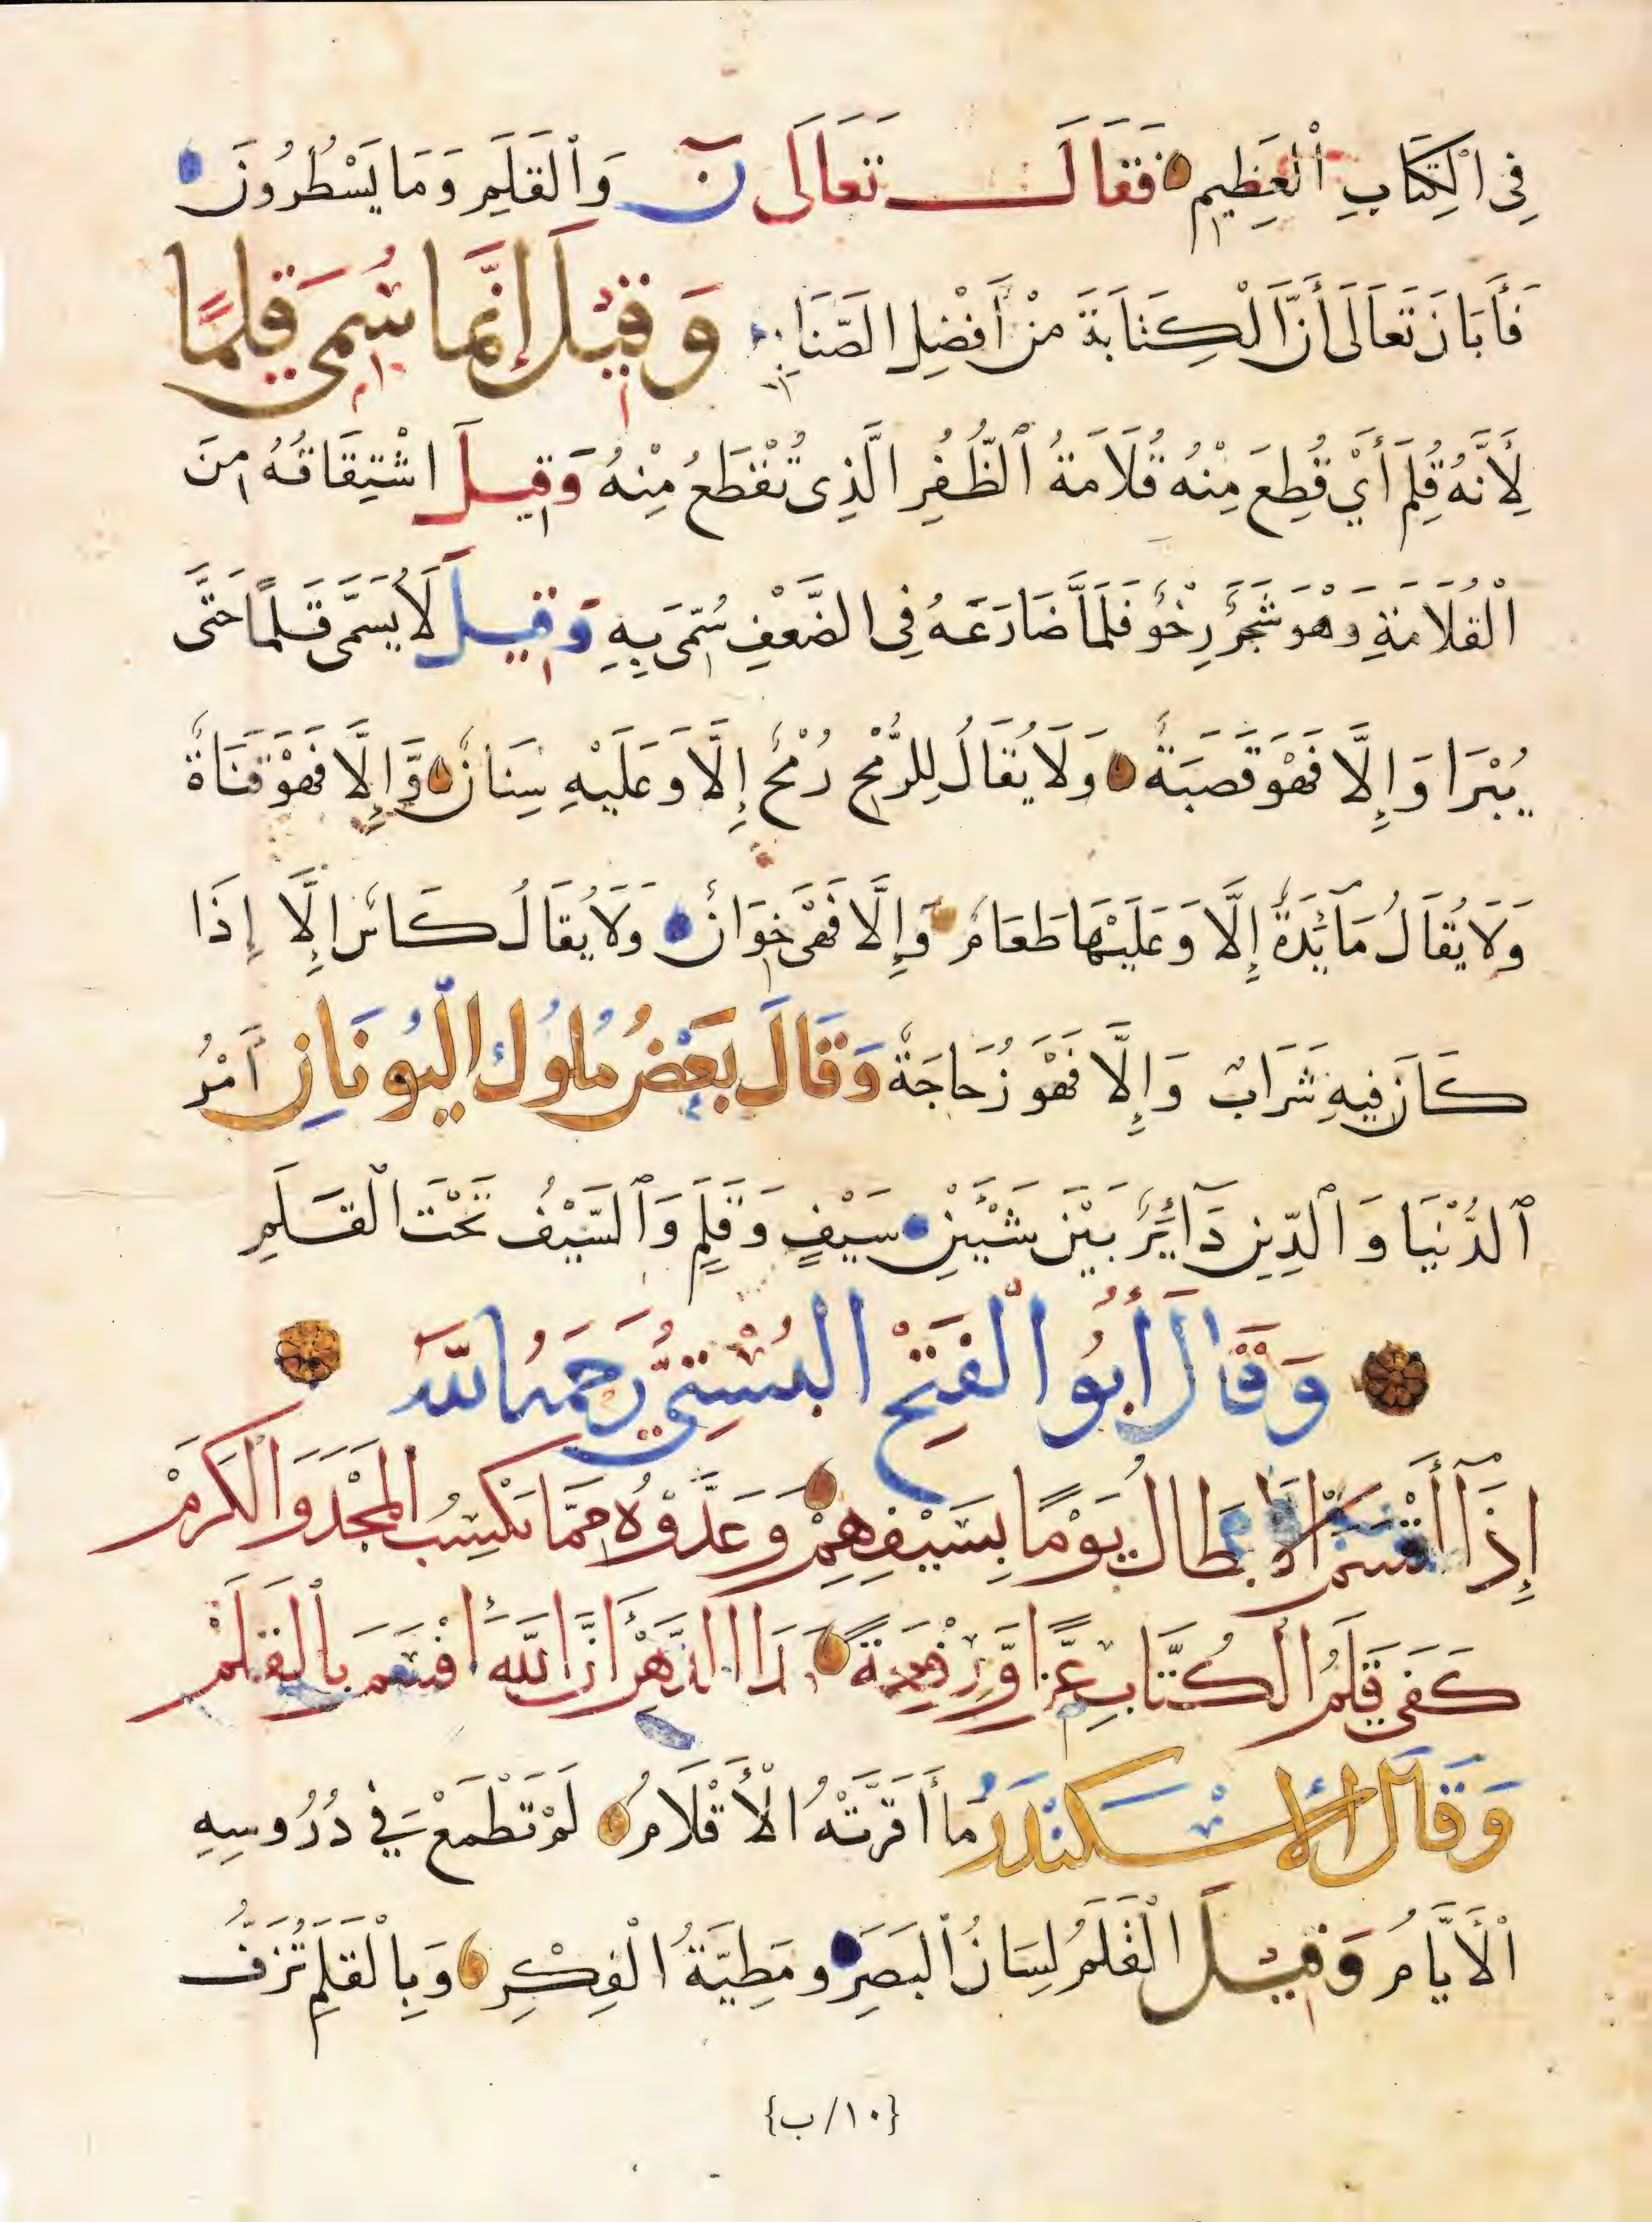 فِى الْكِتَابِ الْعَظِيمِ فَقَالَ تَعَالَى نٓ وَٱلْقَلَمِ وَمَا يَسْطُرُونَ
فَأَبَانَ تَعَالَى أَنَّ الْكِتَابَةَ مِنْ أَفْضَلِ الصَّنَايِعِ وَقِيْلَ إِنَّمَا سُمِّىَ قَلَمًا
لِأَنَّهُ قُلِمَ أَيْ قُطِعَ مِنْهُ قُلَامَةُ ٱلظُّفُرِ الَّذِى تُقْطَعُ مِنْهُ وَقِيلَ اشْتِقَاقُهُ مِنَ
الْقُلَامَةِ وَهْوَ شَجَرٌ رِخْوٌ فَلَمَّا ضَارَعَهُ فِى الضَّعْفِ سُمِّىَ بِهِ وَقِيلَ لَا يُسَمَّى قَلَمًا حَتَّى
يُبْرَا وَإِلَّا فَهْوَ قَصَبَةٌ وَلَا يُقَالُ لِلرُّمْحِ رُمْحٌ إِلَّا وَعَلَيْهِ سِنَانٌ وَإِلَّا فَهْوَ قَنَاةٌ
وَلَا يُقَالُ مَآئِدَةٌ إِلَّا وَعَلَيْهَا طَعَامٌ وَإِلَّا فَهْىَ خِوَانٌ وَلَا يُقَالُ كَاسٌ إِلَّا إِذَا
كَانَ فِيهِ شَرَابٌ وَإِلَّا فَهْوَ زُجَاجَةٌ وَقَالَ بَعْضُ مُلُوكِ الْيُونَانِ أَمْرُ
ٱلدُّنْيَا وَٱلدِّينِ دَآئِرٌ بَيْنَ شَيْئَيْنِ سَيْفٍ وَقَلَمٍ وَٱلسَّيْفُ تَحْتَ الْقَلَمِ
وَقَالَ أَبُو الْفَتْحِ الْبُسْتِيُّ رَحِمَهُ اللَّهُ
إِذَآ أَقْسَمَ الْأَبْطَالُ يَوْمًا بِسَيْفِهِمْ وَعَدُّوْهُ مِمَّا يَكْسِبُ الْمَجْدَ وَالْكَرَمْ
كَفَى قَلَمُ الْكُتَّابِ عِزًّا وَرِفْعَةً مَدَا الدَّهْرِ أَنَّ اللَّهَ أَقْسَمَ بِالْقَلَمْ
وَقَالَ الْإِسْكَنْدَرُ مَا أَقَرَّتْهُ الْأَقْلَامُ لَمْ تَطْمَعْ فِي دُرُوسِهِ
الْأَيَّامُ وَقِيْلَ الْقَلَمُ لِسَانُ الْبَصَرِ وَمَطِيَّةُ الْفِكْرِ وَبِالْقَلَمِ تُزَفُّ
{١٠/ب}